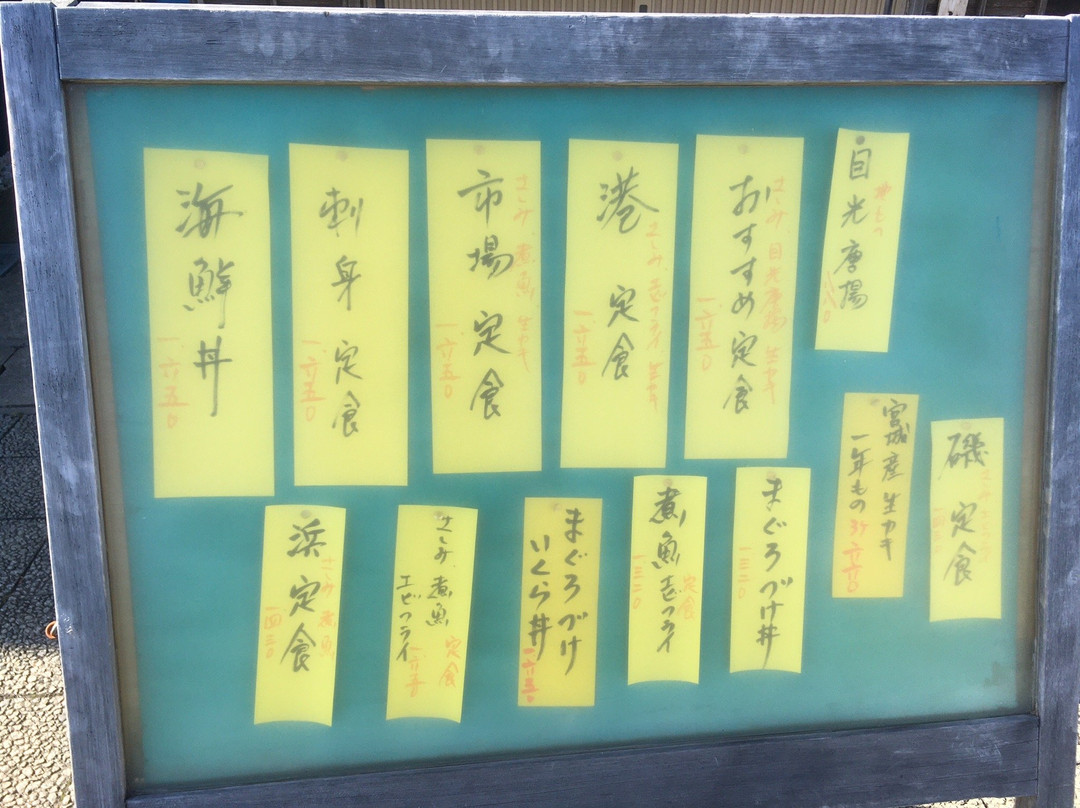 目光唐揚
おすすめ定食
さしみ 目光唐揚 生カキ
一、六五〇
港 定食
さしみ えびフライ 生カキ
一、六五〇
市場定食
さしみ 煮魚 生カキ
一、六五〇
刺身定食
一、六五〇
海鮮丼
一、六五〇
磯定食
宮城産生カキ
一年もの
六六〇
まぐろづけ丼
一三二〇
煮魚えびフライ
定食
一三二〇
まぐろづけ
いくら丼
一、六五〇
さしみ 煮魚
エビフライ
定食
浜定食
さしみ 煮魚
一四三〇